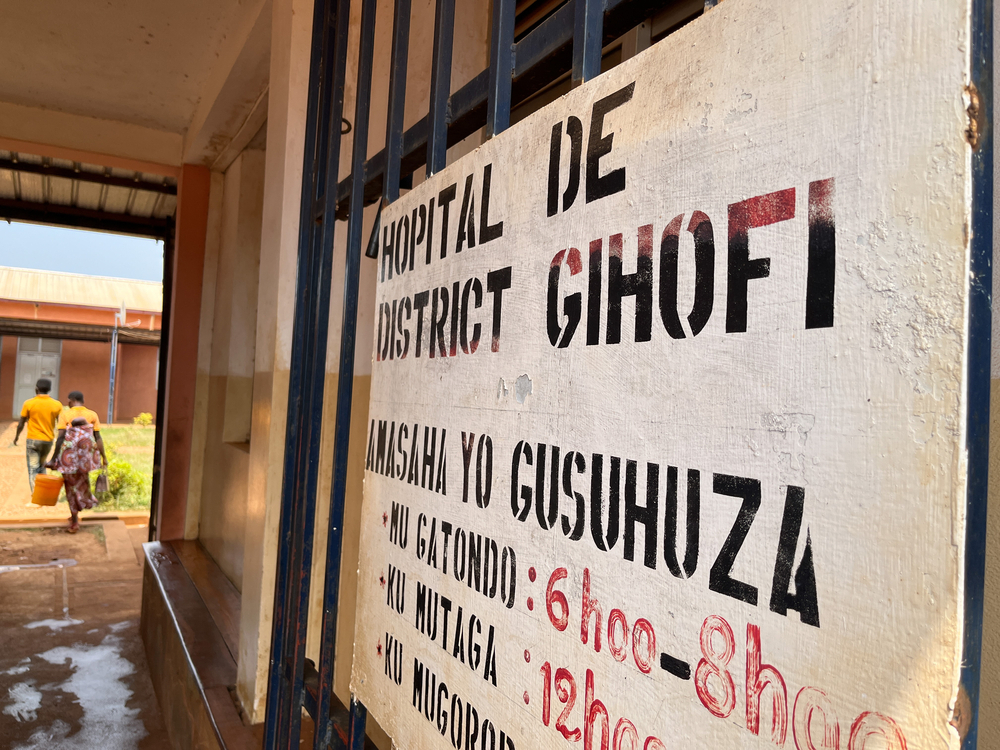 HOPITAL DE
DISTRICT GIHOFI
AMASAHA YO GUSUHUZA
* MU GATONDO : 6hoo - 8hoo
* KU MUTAGA : 12hoo
* KU MUGOROB